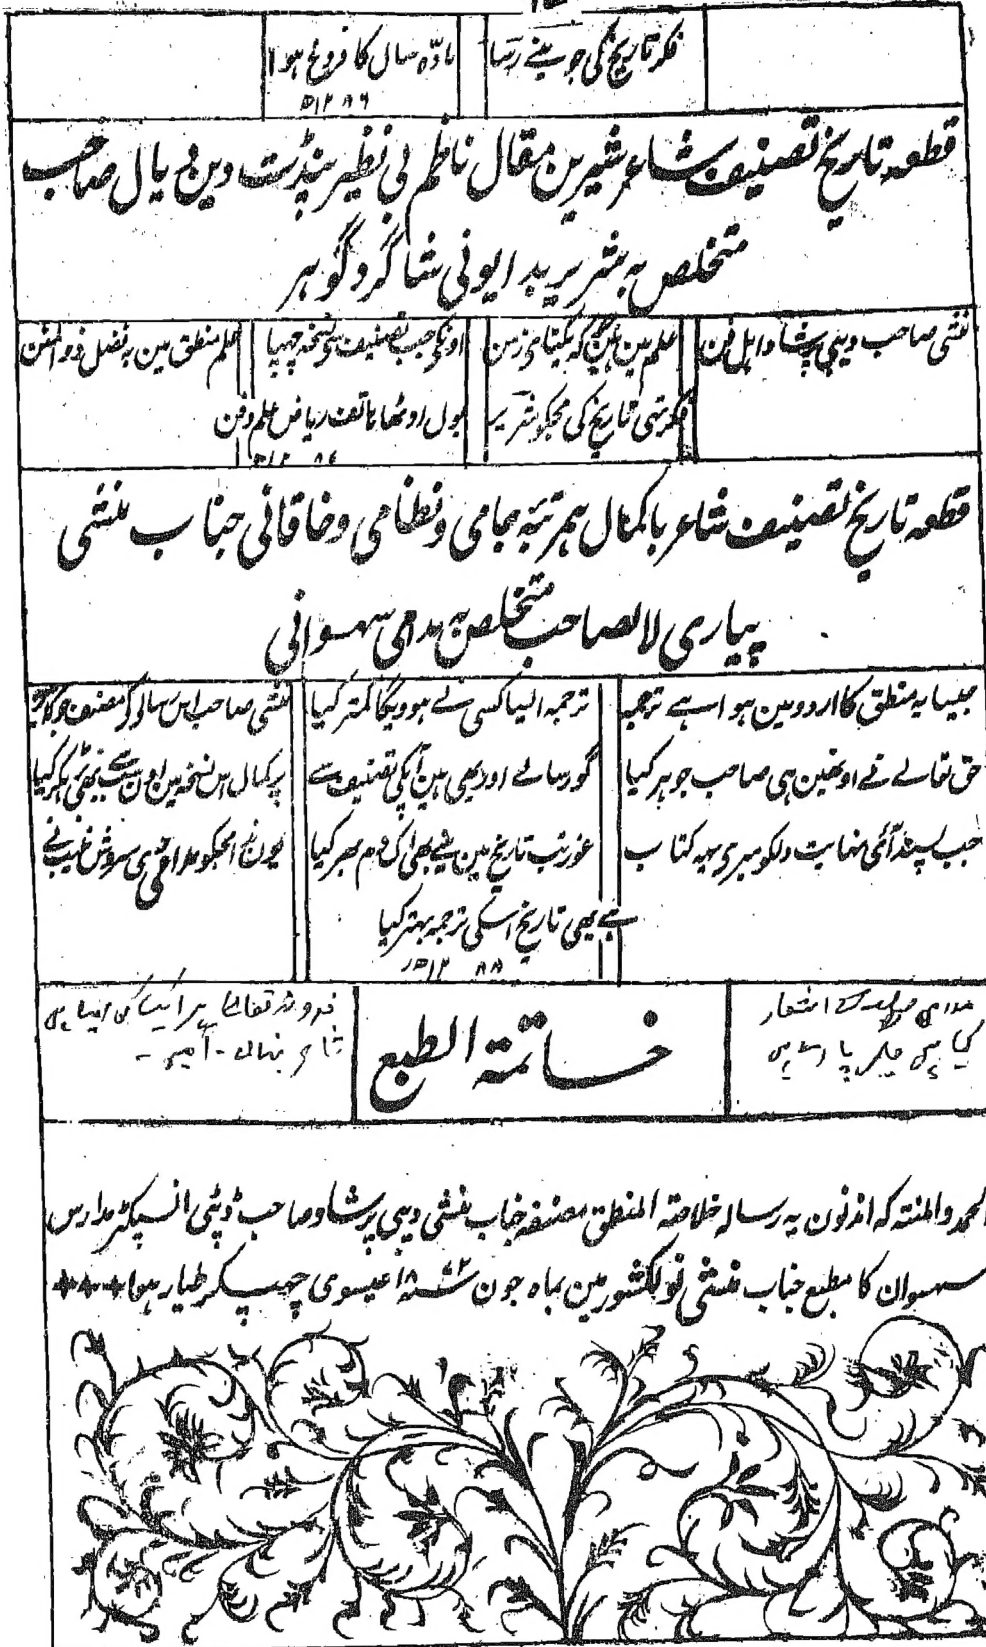 فکر تاریخ کی جو مینے رسا مادّہ سال کا فروغ ہوا
۱۲۸۶ھ
قطعہ تاریخ تصنیف شاعر شیرین مقال ناظم بی نظیر پنڈت دین دیال صاحب
متخلص بہ شریر بدایونی شاگرد گوہر
منشی صاحب دیبی پرشاد اہل فن علم مین ہین گے یکتای زمن اونکی جب تصنیف سی نسخہ چھپا علم منطق مین بہ فضل ذو المنن
فکر تھی تاریخ کی مجکو شریر بول اوٹھا ہاتف ریاض علم و فن
۱۲۸۶ھ
قطعہ تاریخ تصنیف شاعر باکمال ہمرتبہ جامی و نظامی و خاقانی جناب منشی
پیاری لالصاحب متخلص بہ مداحی سہسوانی
جیسا یہ منطق کا اردو مین ہوا ہے ترجمہ ترجمہ ایسا کسی نے ہوویگا کمتر کیا منشی صاحب اس رسالہ کے مصنف جو کہ ہین
حق تعالے نے اونھین ہی صاحب جوہر کیا گو رسالے اور بھی ہین آپکی تصنیف سے پر کمال اس نسخہ مین اون سب سے بھی بڑھکر کیا
جب پسند آئی نہایت دلکو میری یہہ کتاب غور تب تاریخ مین مینے بھی اک دم بھر کیا یون کہا مجکو مداحی سروش غیب نے
ہے یہی تاریخ اسکی ترجمہ بہتر کیا
۱۲۸۸ھ
خاتمۃ الطبع
الحمد والمنتہ کہ اندنون یہ رسالہ خلاصتہ المنطق مصنفہ جناب منشی دیبی پرشاد صاحب ڈپٹی انسپکٹر مدارس
سہسوان کا مطبع جناب منشی نولکشور مین بماہ جون سنہ ۱۸۷۲ عیسوی چھپکر طیار ہوا